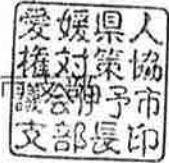 愛媛県人
権対策協
議会伊予市
支部長印